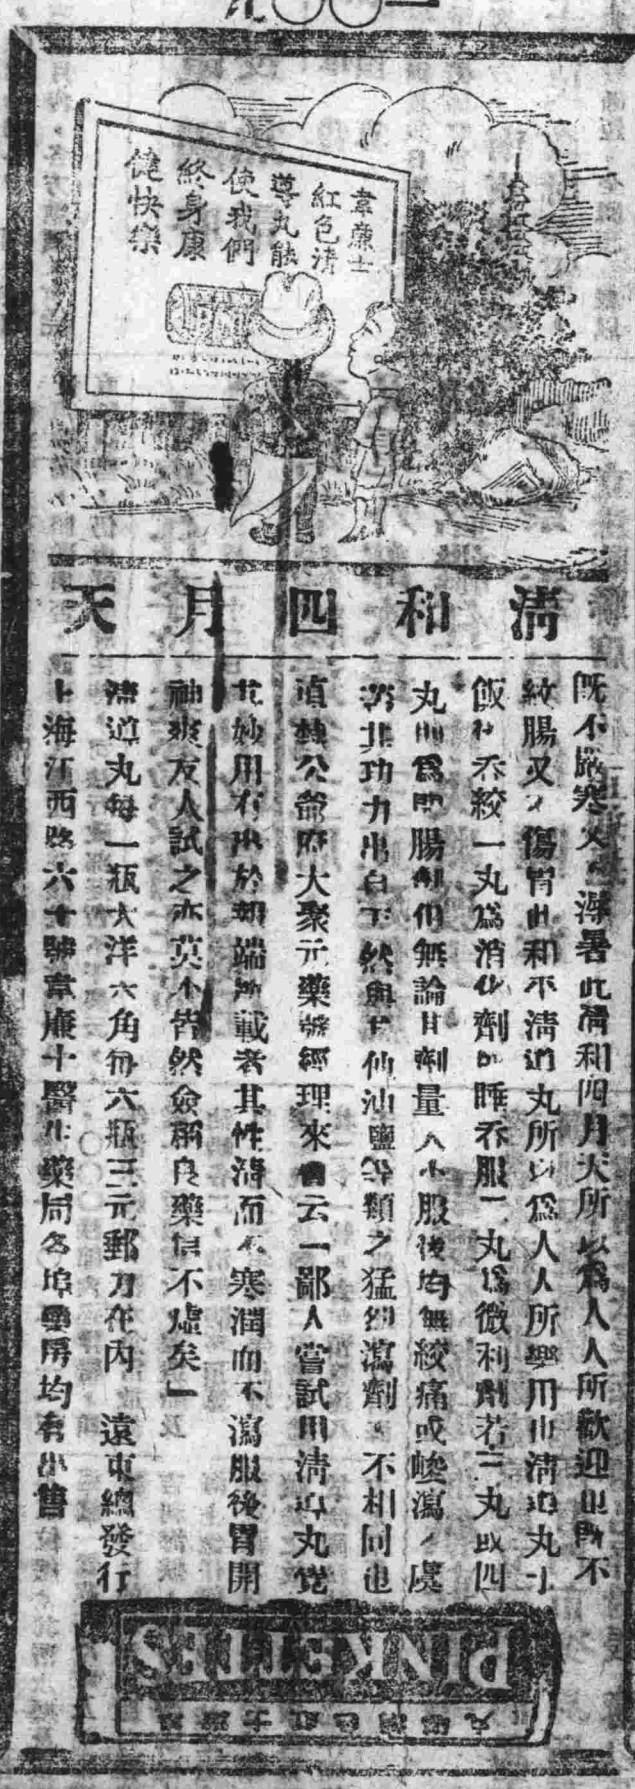 一〇〇
韋廉士
紅色清
導丸能
使我們
終身康
健快樂
清和四月天
既不嚴寒又不溽暑此清和四月天所以爲人人所歡迎也既不
絞腸又不傷胃此和平清道丸所以爲人人所樂用也清道丸于
飯後吞絞一丸爲消化劑臨睡吞服二丸爲微利劑若三丸或四
丸則爲即腸劑但無論其劑量大小服後均無絞痛或峻瀉之虞
其功力出自天然與仙油鹽等類之猛烈瀉劑不相同也
直公爺府大聚元藥號經理來書云「鄙人嘗試用清道丸覺
其妙用有出於報端所載者其性清而不寒潤而不瀉服後胃開
神爽友人試之亦莫不皆然僉稱良藥信不虛矣」
清道丸每一瓶大洋六角每六瓶三元郵力在內 遠東總發行
上海江西路六十號韋廉士醫生藥局各埠藥房均有出售
PINKETTES